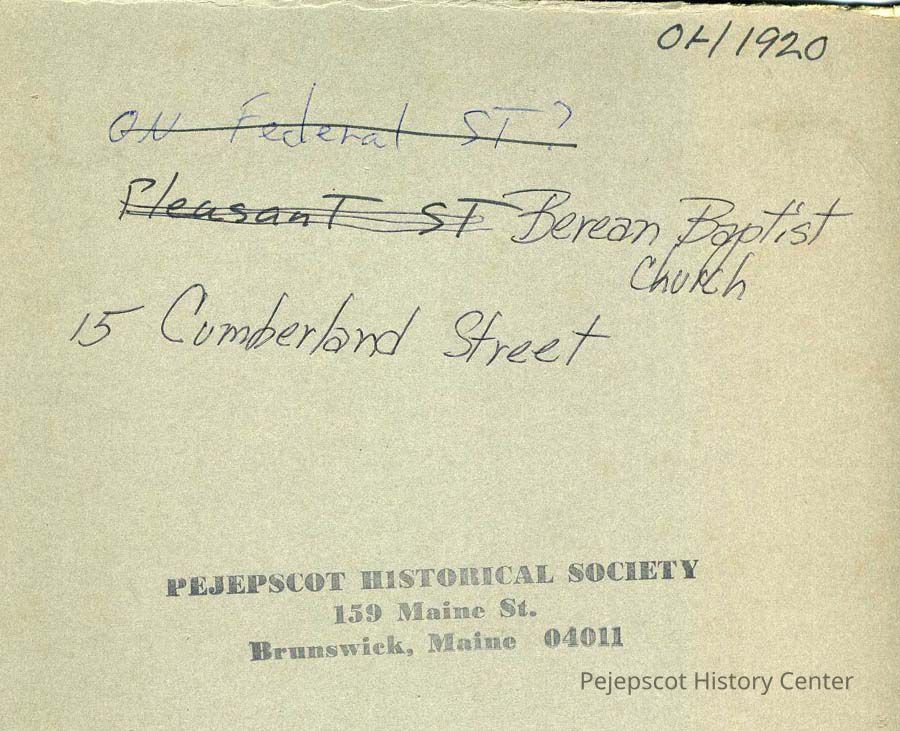 OH/1920
ON Federal ST?
Pleasant ST Berean Baptist
Church
15 Cumberland Street
PEJEPSCOT HISTORICAL SOCIETY
159 Maine St.
Brunswick, Maine 04011
Pejepscot History Center